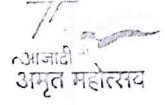 आज़ादी
अमृत महोत्सव